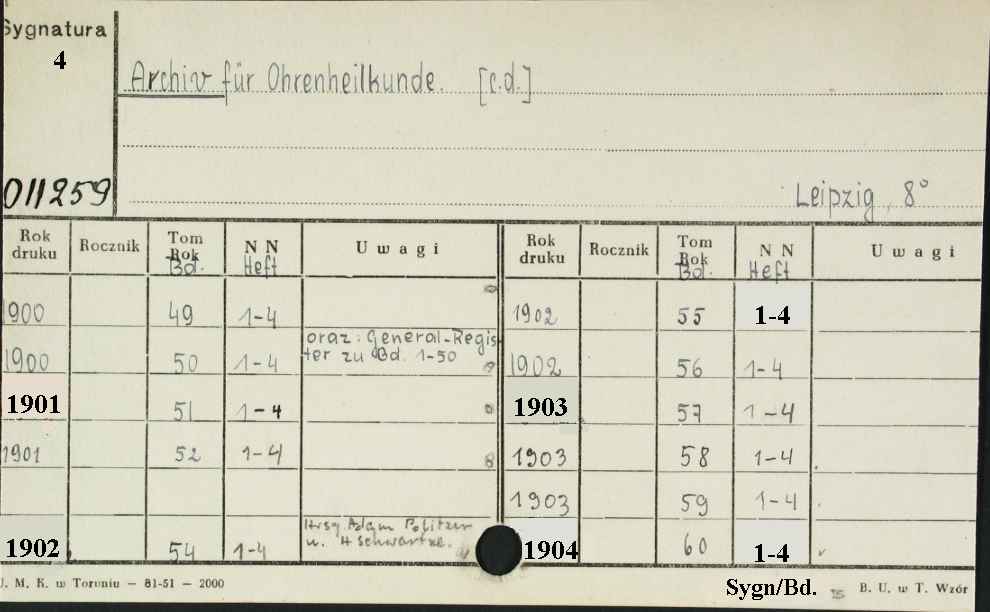 Sygnatura
4
Archiv für Ohrenheilkunde. [c.d.]
011259
Leipzig, 8°
Rok druku Rocznik Tom Rok Bd. NN Heft Uwagi Rok druku Rocznik Tom Rok Bd. NN Heft Uwagi
1900 49 1-4 1902 55 1-4
1900 50 1-4 oraz: General-Register zu Bd. 1-50 1902 56 1-4
1901 51 1-4 1903 57 1-4
1901 52 1-4 1903 58 1-4
1903 59 1-4
1902 54 1-4 Hrsg. Adam Politzer u. H Schwartze. 1904 60 1-4
J. M. K. w Toruniu — 81-51 — 2000 Sygn/Bd. B. U. w T. Wzór